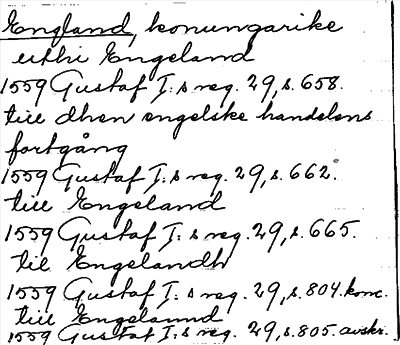 England, konungarike
uthi Engeland
1559 Gustaf I:s reg. 29, s. 658.
till dhen engelske handelens
fortgång
1559 Gustaf I:s reg. 29, s. 662.
till Engeland
1559 Gustaf I:s reg. 29, s. 665.
til Engelandh
1559 Gustaf I:s reg. 29, s. 804. konc.
till Engelannd
1559 Gustaf I:s reg. 29, s. 805. avskr.